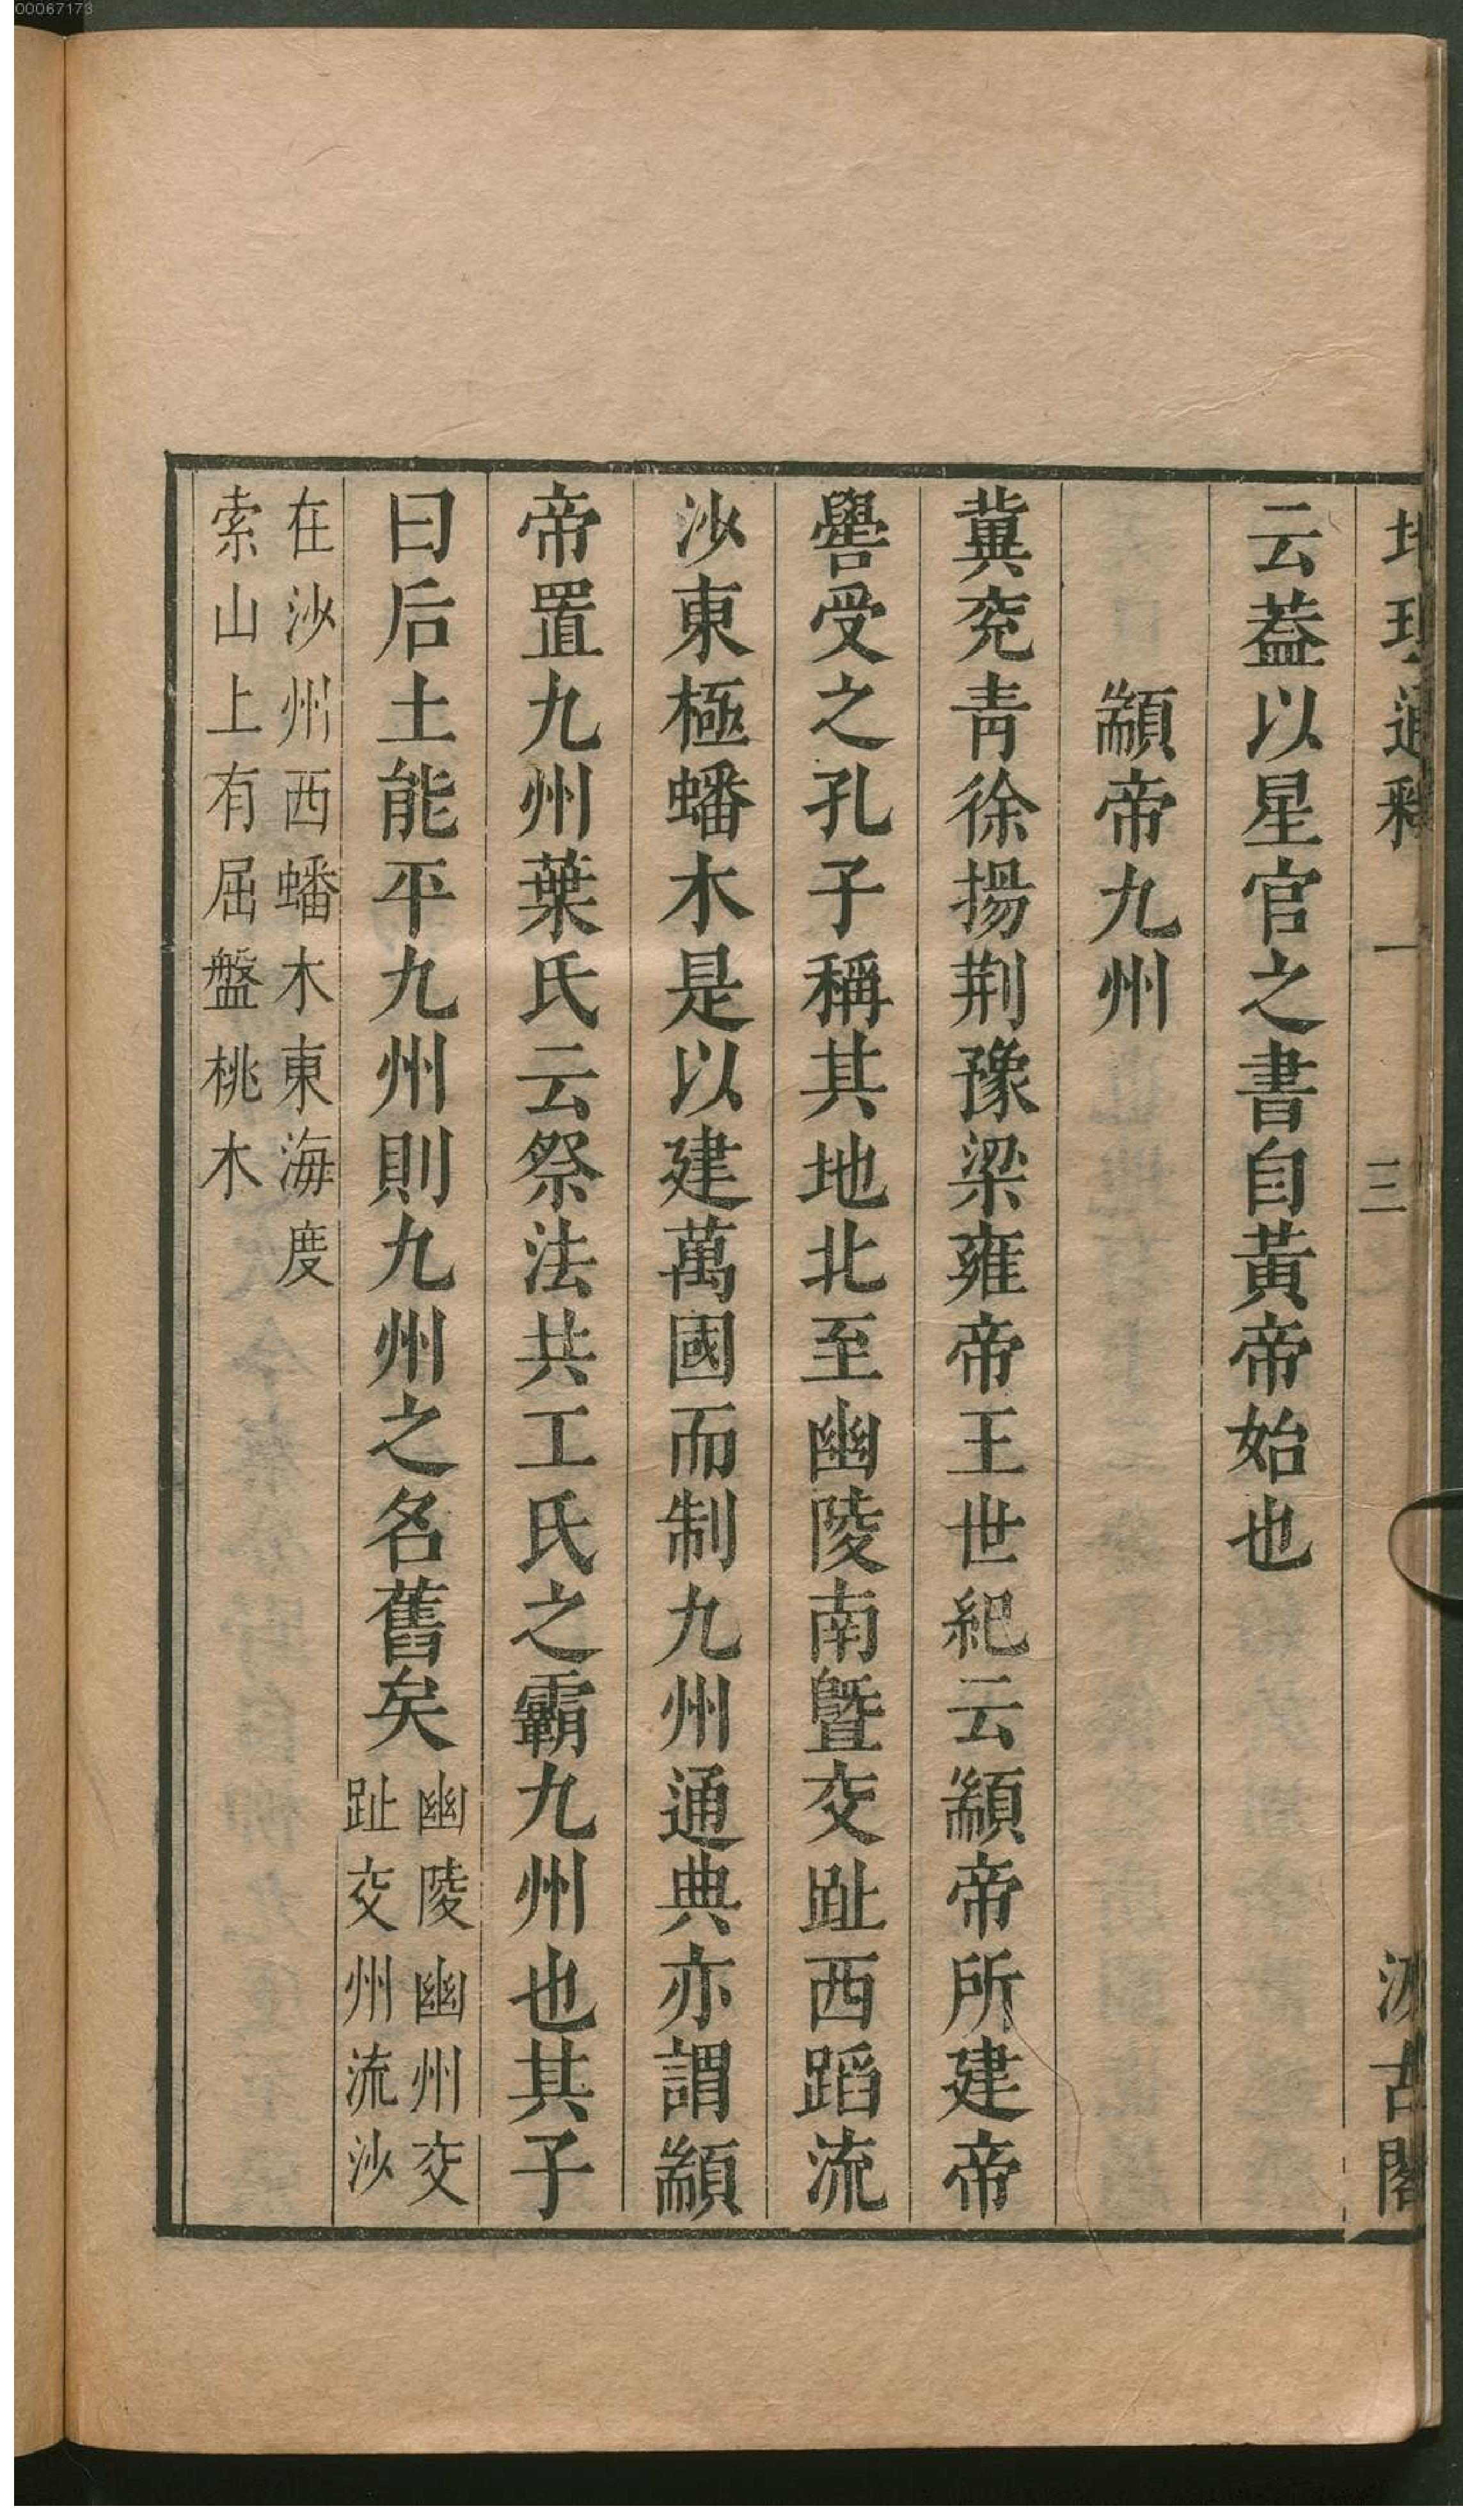 00067173
地理通釋 一 三 汲古閣
云葢以星官之書自黃帝始也
顓帝九州
冀兖靑徐揚荆豫梁雍帝王世紀云顓帝所建帝
嚳受之孔子稱其地北至幽陵南曁交趾西蹈流
沙東極蟠木是以建萬國而制九州通典亦謂顓
帝置九州葉氏云祭法共工氏之霸九州也其子
曰后土能平九州則九州之名舊矣
幽陵幽州交
趾交州流沙
在沙州西蟠木東海度
索山上有屈盤桃木